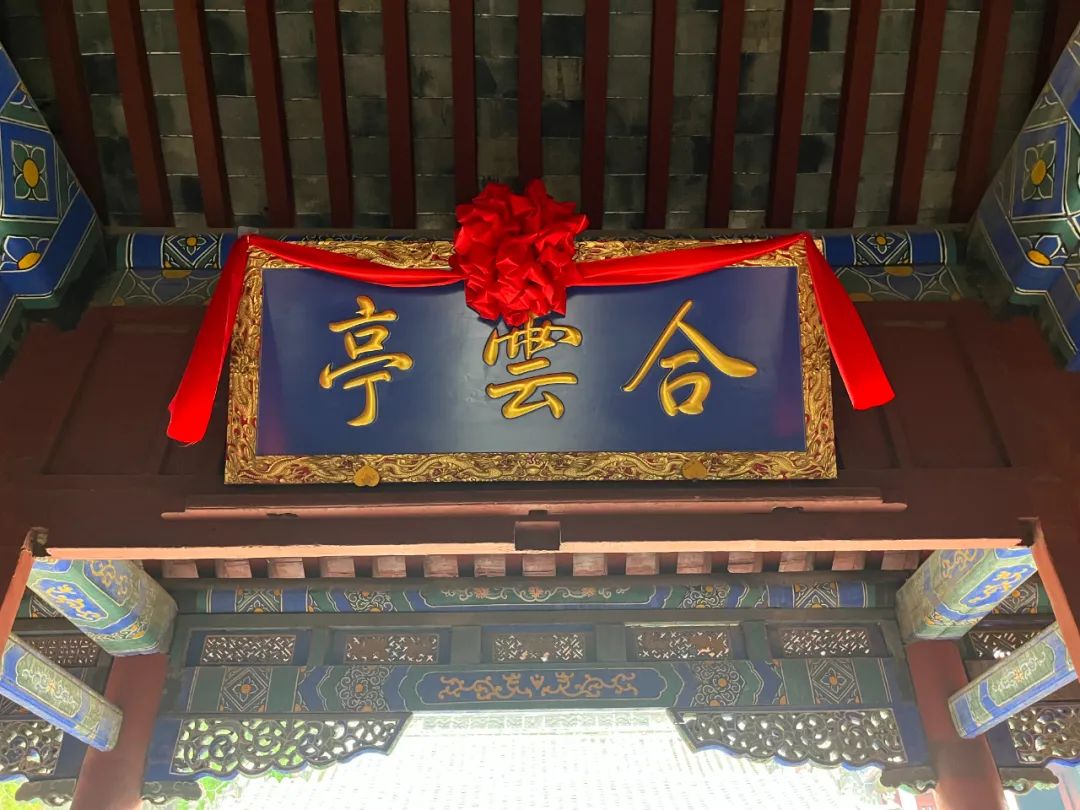 合雲亭